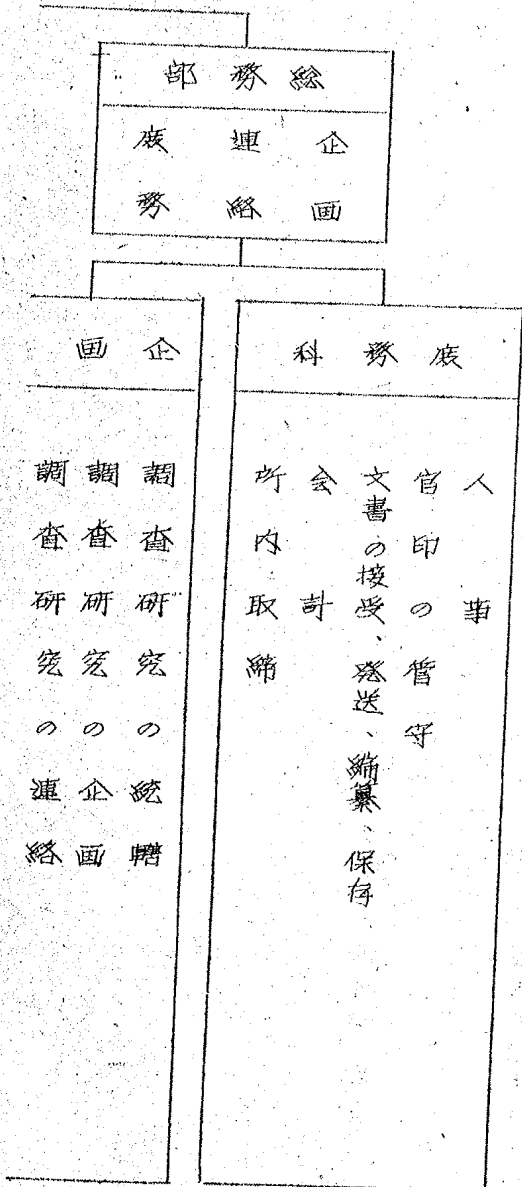 総務部
企画
連絡
庶務
庶務科
人事
官印の管守
文書の接受、発送、編纂、保存
会計
所内取締
企画
調査研究の統轄
調査研究の企画
調査研究の連絡